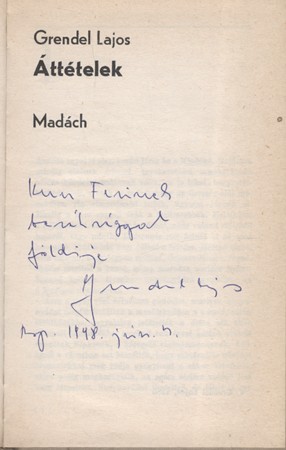 Grendel Lajos
Áttételek
Madách
Kun Ferinek
barátsággal
földije
Grendel Lajos
Bp. 1998. jún. 4.